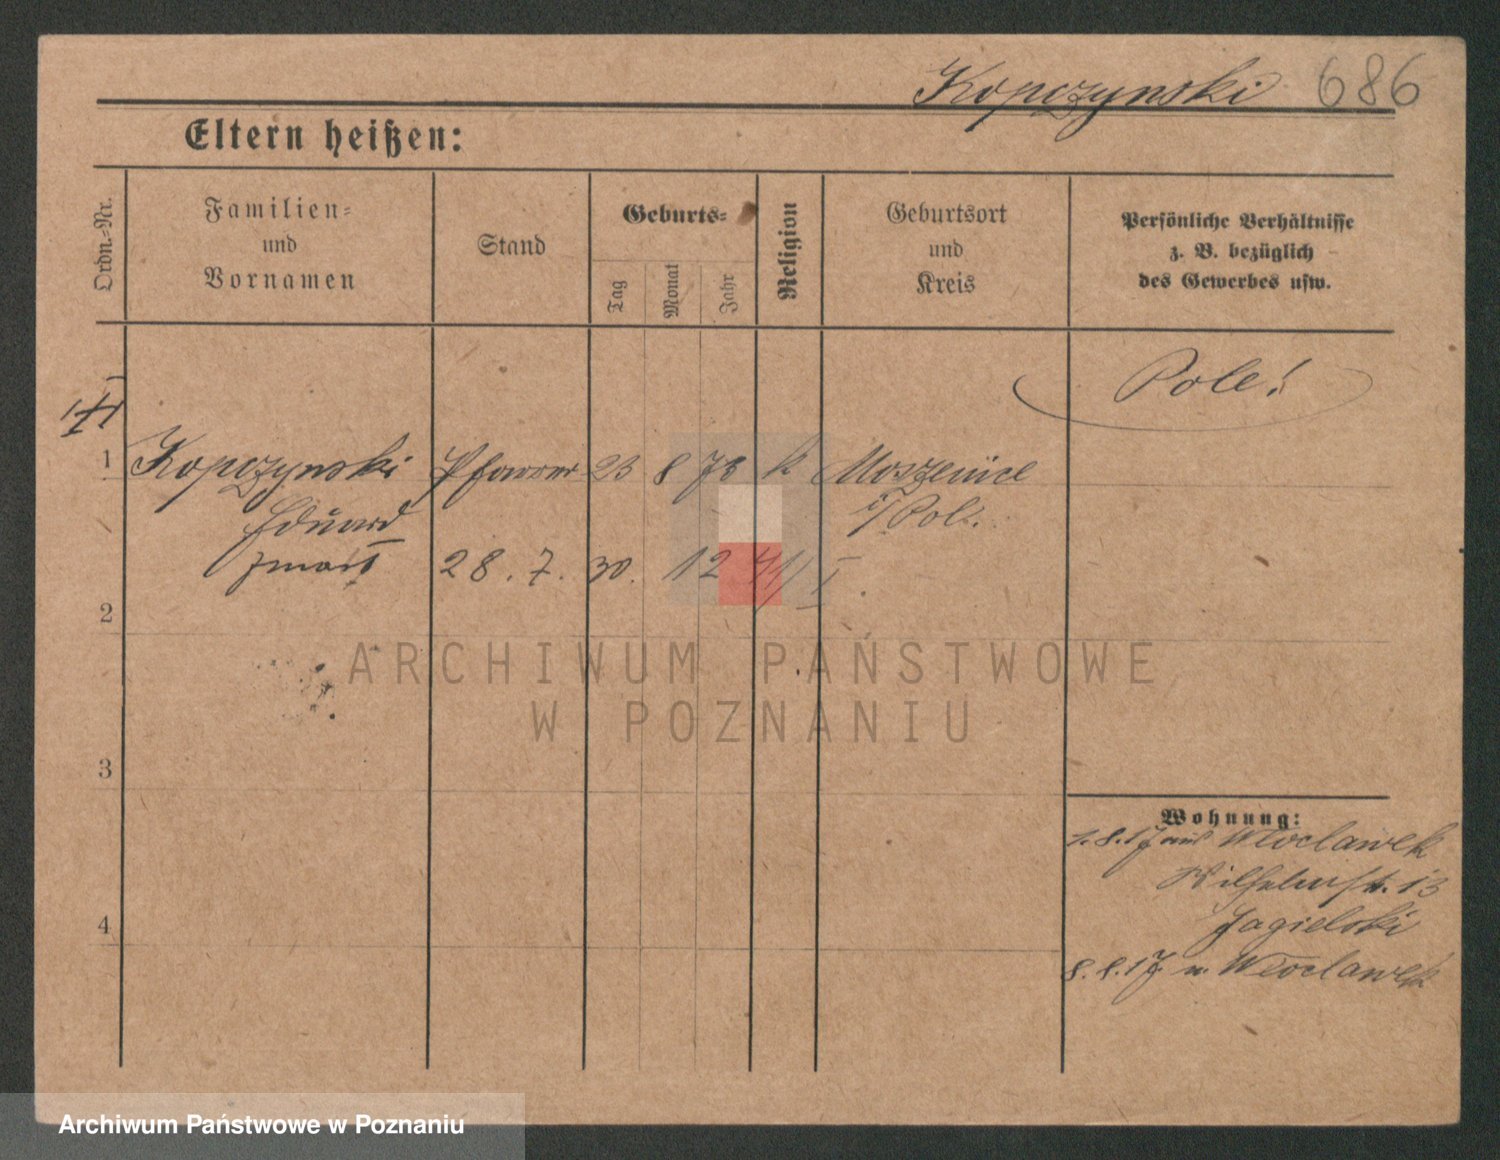 Kopczynski 686
Eltern heißen:
Ordn.-Nr.
Familien-
und
Vornamen
Stand
Geburts-
Tag
Monat
Jahr
Religion
Geburtsort
und
Kreis
Persönliche Verhältnisse
z. B. bezüglich
des Gewerbes usw.
Pole!
1 Kopczynski Pfarrer 23 8 78 k Moszenice
Eduard i/Pol.
28. 7. 30. 12 41/I.
2
ARCHIWUM PAŃSTWOWE
W POZNANIU
3
Wohnung:
1.8.17 aus Wloclawek
Wilhelmstr. 13
Jagielski
4
8.8.17 n. Wloclawek
Archiwum Państwowe w Poznaniu